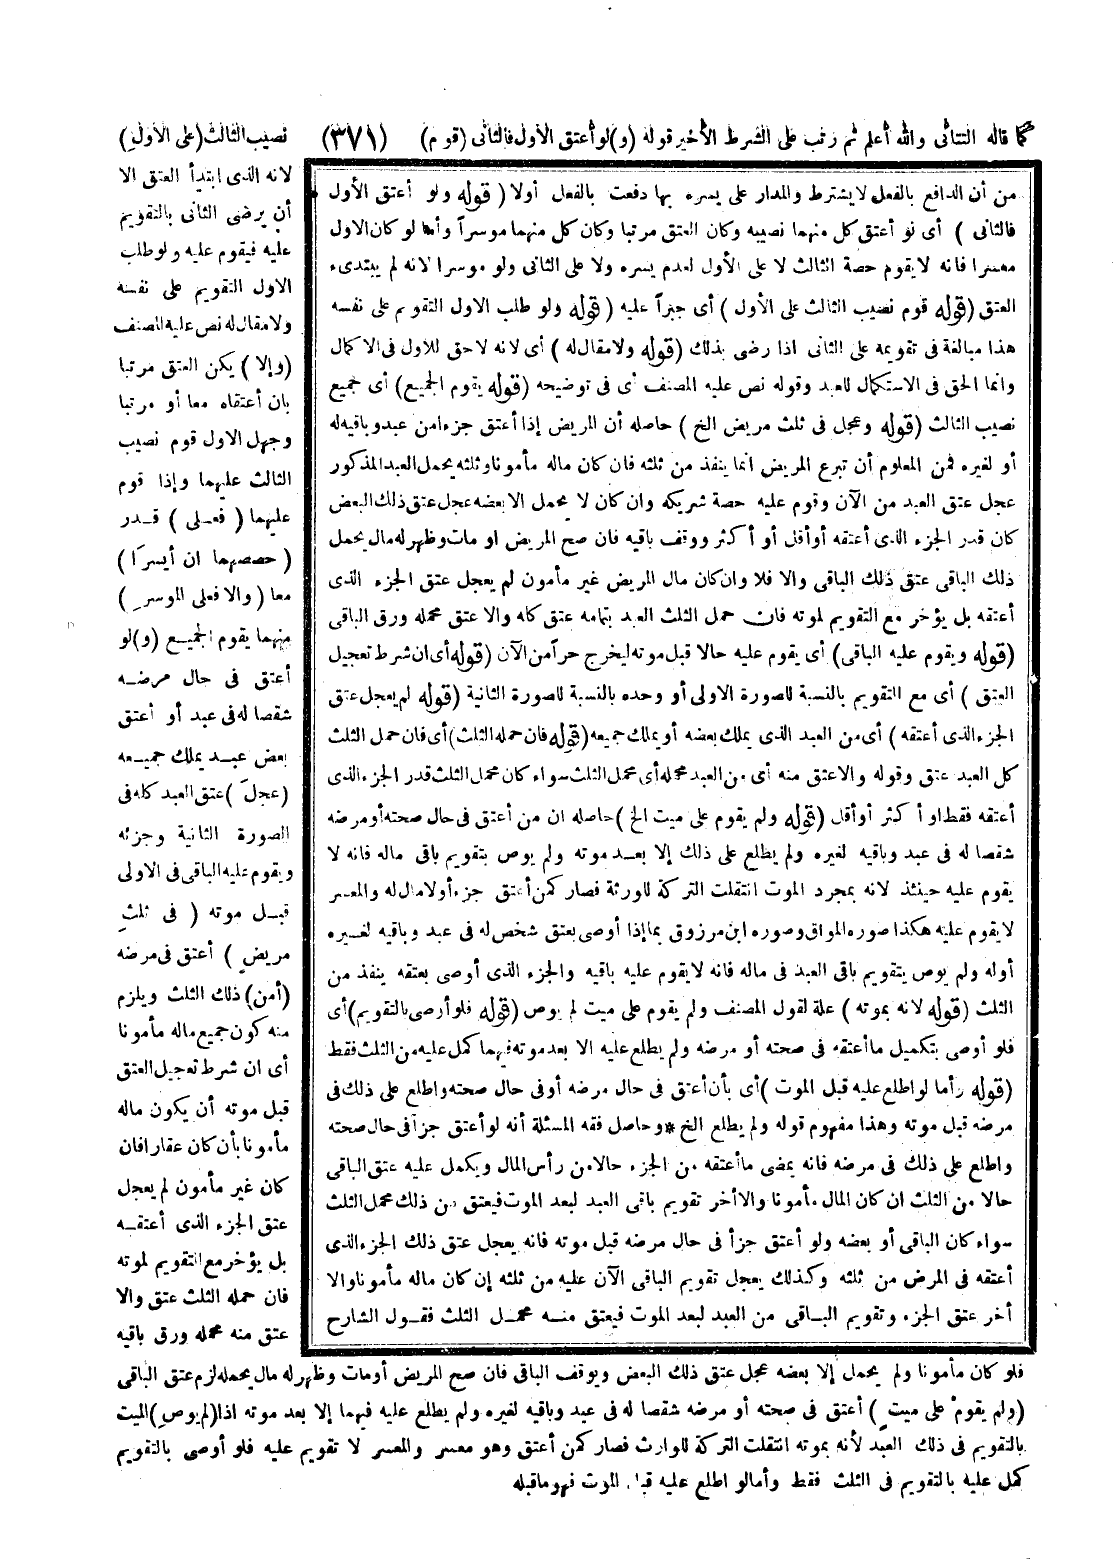 كما قاله التتائى والله أعلم ثم رتب على الشرط الأخير قوله (و) لو أعتق الأول فالثانى (قوم) (٣٧١) نصيب الثالث (على الأول)
لانه الذى ابتدأ العتق الا
أن يرضى الثانى بالتقويم
عليه فيقوم عليه ولو طلب
الاول التقويم على نفسه
ولا مقال له نص عليه المصنف
(والا) يكن العتق مرتبا
بان أعتقاه معا أو مرتبا
وجهل الاول قوم نصيب
الثالث عليهما وإذا قوم
عليهما (فعلى) قدر
(حصصهما ان أيسرا)
معا (والا فعلى الموسر)
منهما يقوم الجميع (و) لو
أعتق فى حال مرضه
شقصا له فى عبد أو أعتق
بعض عبد يملك جميعه
(عجل) عتق العبد كله فى
الصورة الثانية وجزئه
ويقوم عليه الباقى فى الاولى
قبل موته (فى ثلث
مريض) أعتق فى مرضه
(أمن) ذلك الثلث ويلزم
منه كون جميع ماله مأمونا
أى ان شرط تعجيل العتق
قبل موته أن يكون ماله
مأمونا بأن كان عقارا فان
كان غير مأمون لم يعجل
عتق الجزء الذى أعتقه
بل يؤخر مع التقويم لموته
فان حمله الثلث عتق والا
عتق منه محمله ورق باقيه
فلو كان مأمونا ولم يحمل إلا بعضه عجل عتق ذلك البعض ويوقف الباقى فان صح المريض أو مات وظهر له مال يحمله لزم عتق الباقى
(ولم يقوم على ميت) أعتق فى صحته أو مرضه شقصا له فى عبد وباقيه لغيره ولم يطلع عليه فيهما إلا بعد موته اذا (لم يوص) الميت
بالتقويم فى ذلك العبد لأنه بموته انتقلت التركة للوارث فصار كمن أعتق وهو معسر والمعسر لا تقويم عليه فلو أوصى بالتقويم
كمل عليه بالتقويم فى الثلث فقط وأما لو اطلع عليه قبل الموت فهو ما قبله
من أن الدافع بالفعل لا يشترط والمدار على يسره بها دفعت بالفعل أولا (قوله ولو أعتق الأول
فالثانى) أى لو أعتق كل منهما نصيبه وكان العتق مرتبا وكان كل منهما موسرا وأما لو كان الاول
معسرا فانه لا يقوم حصة الثالث لا على الأول لعدم يسره ولا على الثانى ولو موسرا لانه لم يبتدىء
العتق (قوله قوم نصيب الثالث على الأول) أى جبرا عليه (قوله ولو طلب الاول التقويم على نفسه
هذا مبالغة فى تقويمه على الثانى اذا رضى بذلك (قوله ولا مقال له) أى لانه لا حق للاول فى الاكمال
وانما الحق فى الاستكمال للعبد وقوله نص عليه المصنف أى فى توضيحه (قوله يقوم الجميع) أى جميع
نصيب الثالث (قوله وعجل فى ثلث مريض الخ) حاصله أن المريض إذا أعتق جزءا من عبد وباقيه له
أو لغيره فمن المعلوم أن تبرع المريض انما ينفذ من ثلثه فان كان ماله مأمونا وثلثه يحمل العبد المذكور
عجل عتق العبد من الآن وقوم عليه حصة شريكه وان كان لا يحمل الا بعضه عجل عتق ذلك البعض
كان قدر الجزء الذى أعتقه أو أقل أو أكثر ووقف باقيه فان صح المريض او مات وظهر له مال يحمل
ذلك الباقى عتق ذلك الباقى والا فلا وان كان مال المريض غير مأمون لم يعجل عتق الجزء الذى
أعتقه بل يؤخر مع التقويم لموته فان حمل الثلث العبد بتمامه عتق كله والا عتق محمله ورق الباقى
(قوله ويقوم عليه الباقى) أى يقوم عليه حالا قبل موته ليخرج حرا من الآن (قوله أى ان شرط تعجيل
العتق) أى مع التقويم بالنسبة للصورة الاولى أو وحده بالنسبة للصورة الثانية (قوله لم يعجل عتق
الجزء الذى أعتقه) أى من العبد الذى يملك بعضه أو يملك جميعه (قوله فان حمله الثلث) أى فان حمل الثلث
كل العبد عتق وقوله والا عتق منه أى من العبد محمله أى محمل الثلث سواء كان محمل الثلث قدر الجزء الذى
أعتقه فقط او أكثر أو أقل (قوله ولم يقوم على ميت الخ) حاصله ان من أعتق فى حال صحته أو مرضه
شقصا له فى عبد وباقيه لغيره ولم يطلع على ذلك إلا بعد موته ولم يوص بتقويم باقى ماله فانه لا
يقوم عليه حينئذ لانه بمجرد الموت انتقلت التركة للورثة فصار كمن أعتق جزء أولا مال له والمعسر
لا يقوم عليه هكذا صوره المواق وصوره ابن مرزوق بما إذا أوصى بعتق شخص له فى عبد وباقيه لغيره
أوله ولم يوص بتقويم باقى العبد فى ماله فانه لا يقوم عليه باقيه والجزء الذى أوصى بعتقه ينفذ من
الثلث (قوله لانه بموته) علة لقول المصنف ولم يقوم على ميت لم يوص (قوله فلو أوصى بالتقويم) أى
فلو أوصى بتكميل ما أعتقه فى صحته أو مرضه ولم يطلع عليه الا بعد موته فيهما كمل عليه من الثلث فقط
(قوله وأما لو اطلع عليه قبل الموت) أى بأن أعتق فى حال مرضه أو فى حال صحته واطلع على ذلك فى
مرضه قبل موته وهذا مفهوم قوله ولم يطلع الخ * وحاصل فقه المسئلة أنه لو أعتق جزأ فى حال صحته
واطلع على ذلك فى مرضه فانه يمضى ما أعتقه من الجزء حالا من رأس المال ويكمل عليه عتق الباقى
حالا من الثلث ان كان المال مأمونا والا أخر تقويم باقى العبد لبعد الموت فيعتق من ذلك محمل الثلث
سواء كان الباقى أو بعضه ولو أعتق جزأ فى حال مرضه قبل موته فانه يعجل عتق ذلك الجزء الذى
أعتقه فى المرض من ثلثه وكذلك يعجل تقويم الباقى الآن عليه من ثلثه إن كان ماله مأمونا والا
أخر عتق الجزء وتقويم الباقى من العبد لبعد الموت فيعتق منه محمل الثلث فقول الشارح